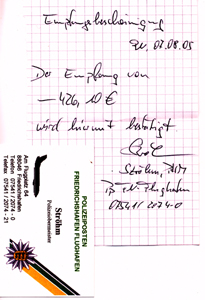 Empfangsbescheinigung
FN, 07.08.05
Der Empfang von
— 426,10 €
wird hiermit bestätigt.
Ströhm, PM
PP FN-Flughafen
07541/2074-0
POLIZEIPOSTEN
FRIEDRICHSHAFEN FLUGHAFEN
Ströhm
Polizeibermeister
Am Flugplatz 64
88046 Friedrichshafen
Telefon 07541 / 2074 - 0
Telefax 07541 / 2074 - 21